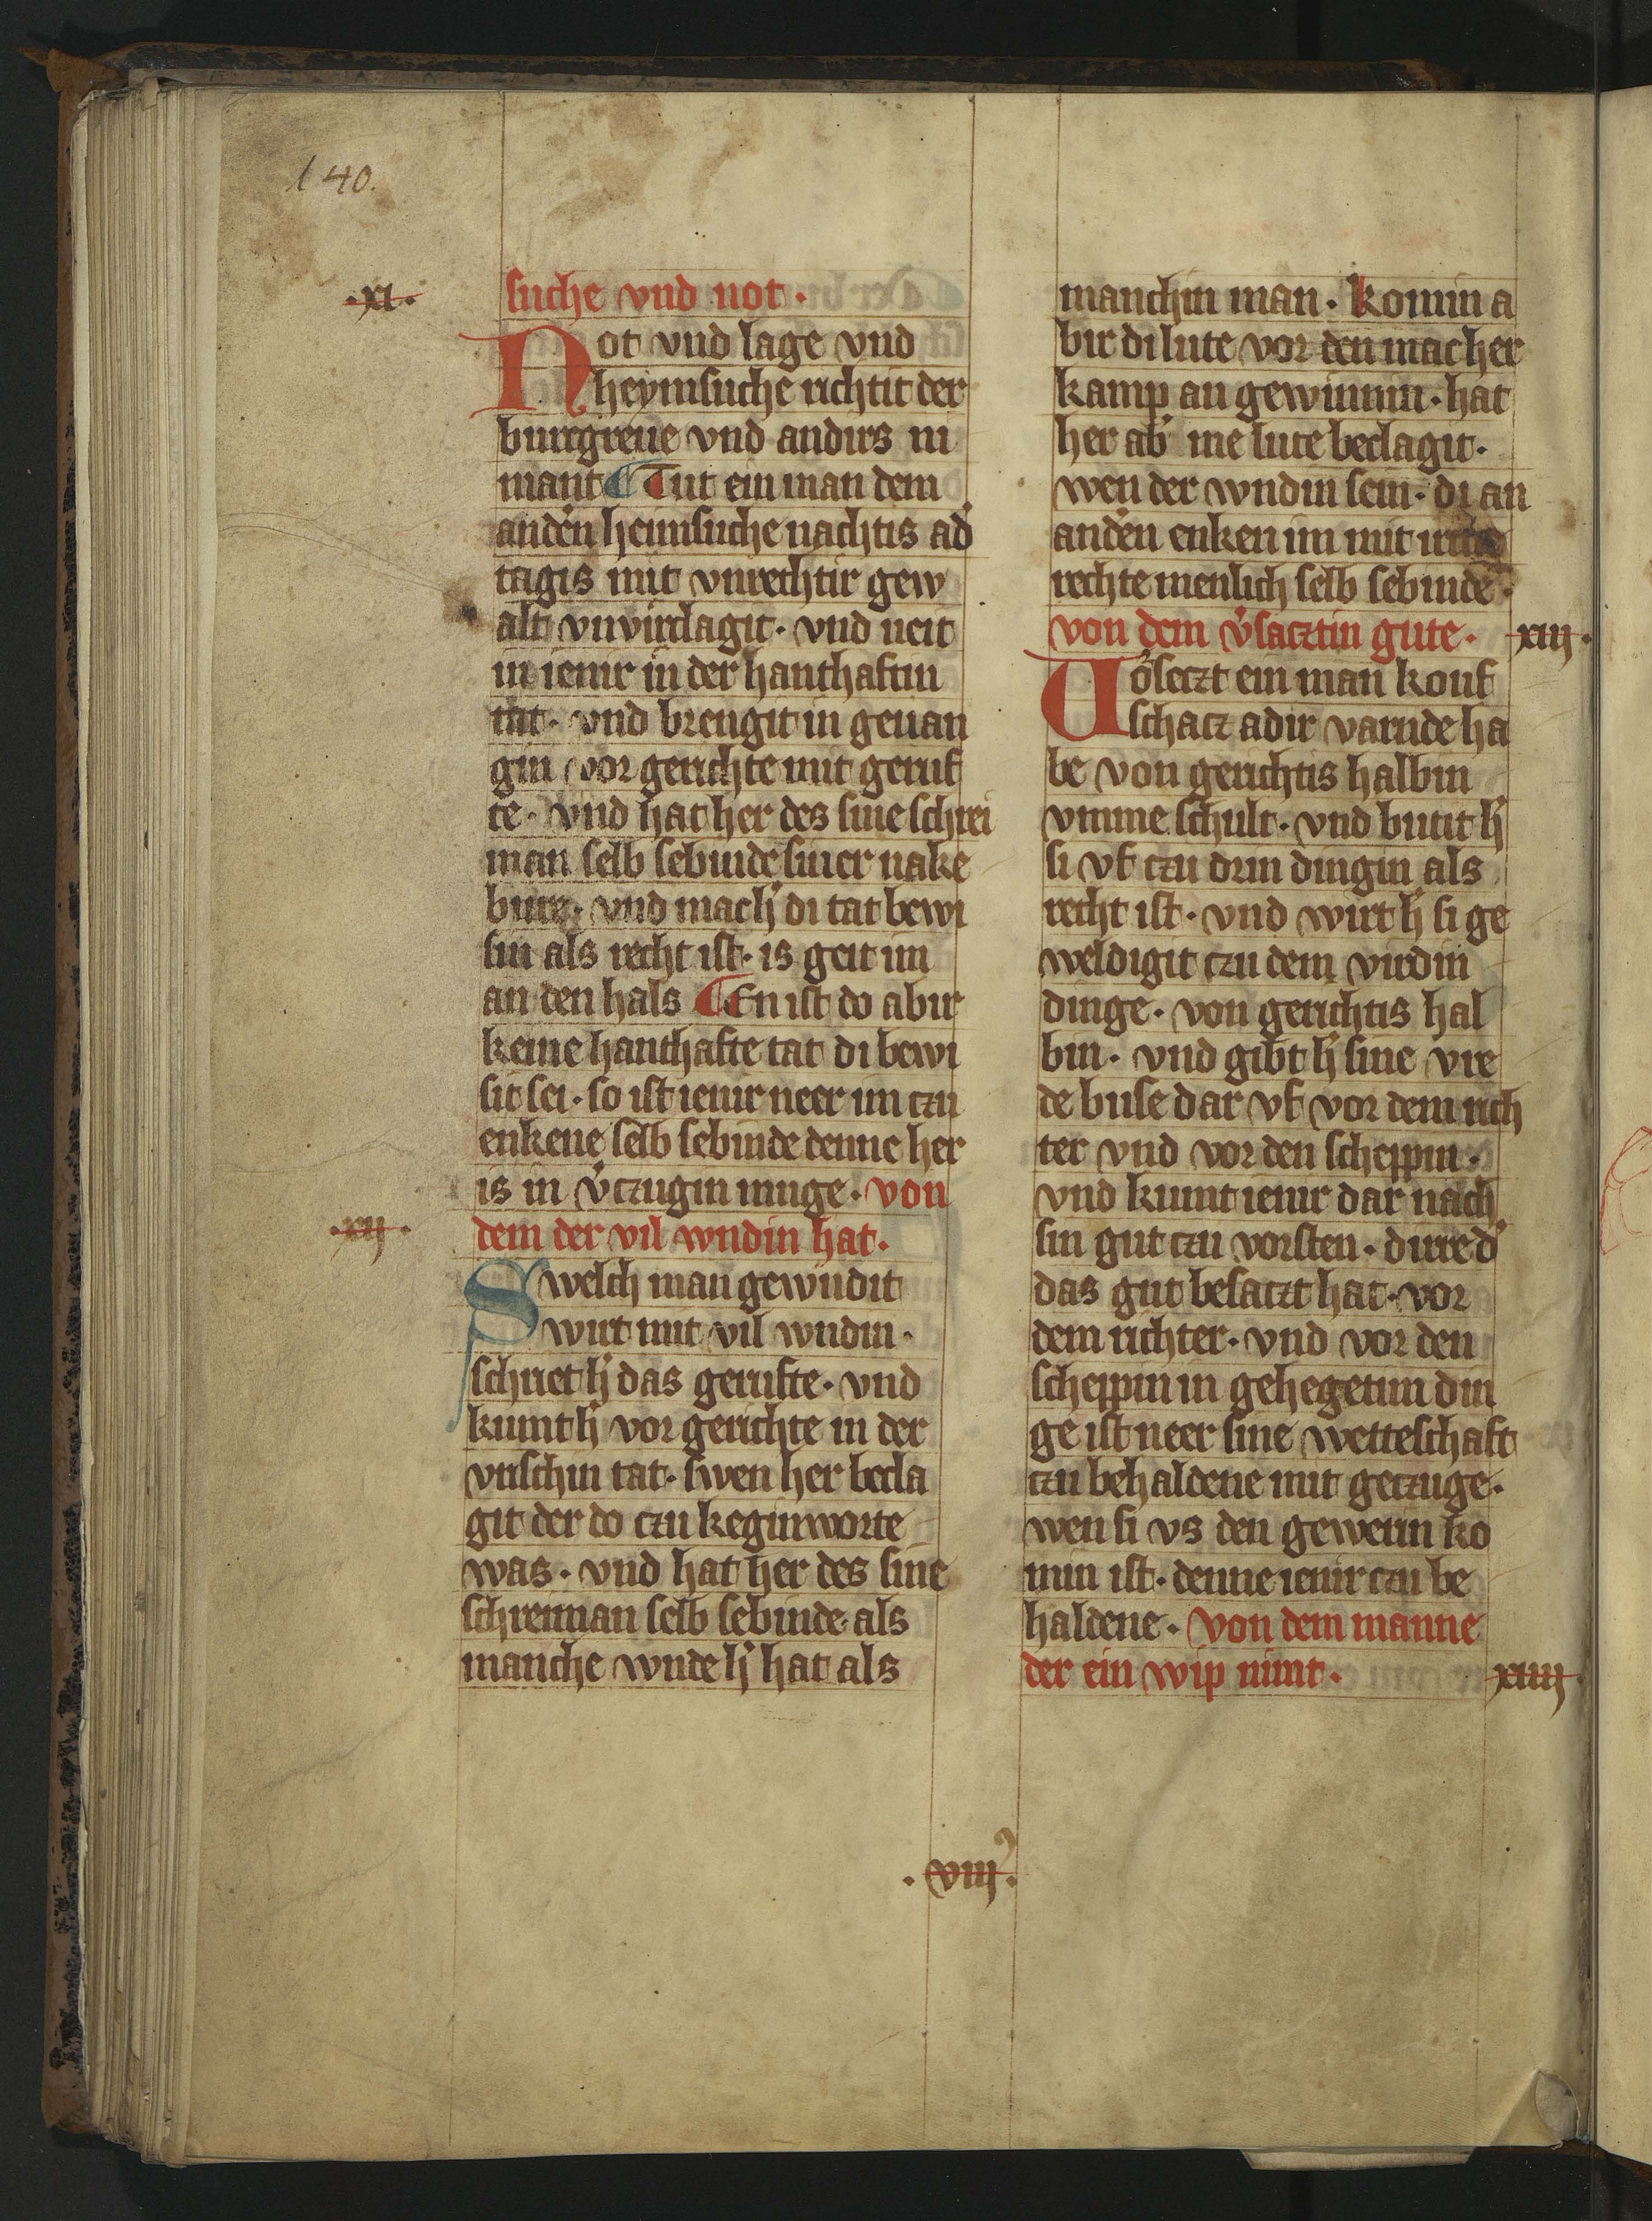 140.
.xi.
suche vnd not.
Not vnd lage vnd
heymsuche richtit der
burcgreue vnd andirs ni
mant Tut ein man dem
anď̓n heimsuche nachtis ad̓
tagis mit vnrechtir gew
alt vnvirclagit. vnd ueit
in ienir in der hanthaftin
tat. vnd brengit in geuan
gin vor gerichte mit geruf
te. vnd hat her des sine schrei
man selb sebinde siner nake
bure. vnd mach h̓ di tat bewi
sin als recht ist. is geit im
an den hals En ist do abir
keine hanthafte tat di bewi
sit sei. so ist ienir neer im czu
enkene selb sebinde denne her
is in v̓czugin muge. von
.xii.
dem der vil wndin hat.
Swelch man gewūdit
wirt mit vil wndin.
schriet h̓ das gerufte. vnd
kumt h̓ vor gerichte in der
vrischin tat. swen her becla
git der do czu keginworte
was. vnd hat her des sine
schreiman selb sebinde als
manche wnde h̓ hat als
manchin man. komin a
bir di lute vor den mac her
kamp an gewinnin. hat
her ab̓ me lute beclagit.
wen der wndin sein. di an
and̓n enken im mit
rechte menlich selb sebinde.
von dem v̓sacztin gute. xiii.
Vo̓seczt ein man kouf
schacz adir varnde ha
be von gerichtis halbin
vmme schult. vnd butit h̓
si vf czu drin dingin als
recht ist. vnd wirt h̓ si ge
weldigit czu dem virdin
dinge. von gerichtis hal
bin. vnd gibt h̓ sine vre
de buse dar vf vor dem rich
ter vnd vor den scheppin.
vnd kumt ienir dar nach
sin gut czu vorsten. dirre d̓
das gut besaczt hat. vor
dem richter. vnd vor den
scheppin in gehegetim din
ge ist neer sine wetteschaft
czu behaldene mit geczuge.
wen si vs den gewerin ko
min ist. denne ienir czu be
haldene. von dem manne
der ein wip nimt. xiiii.
.viii.